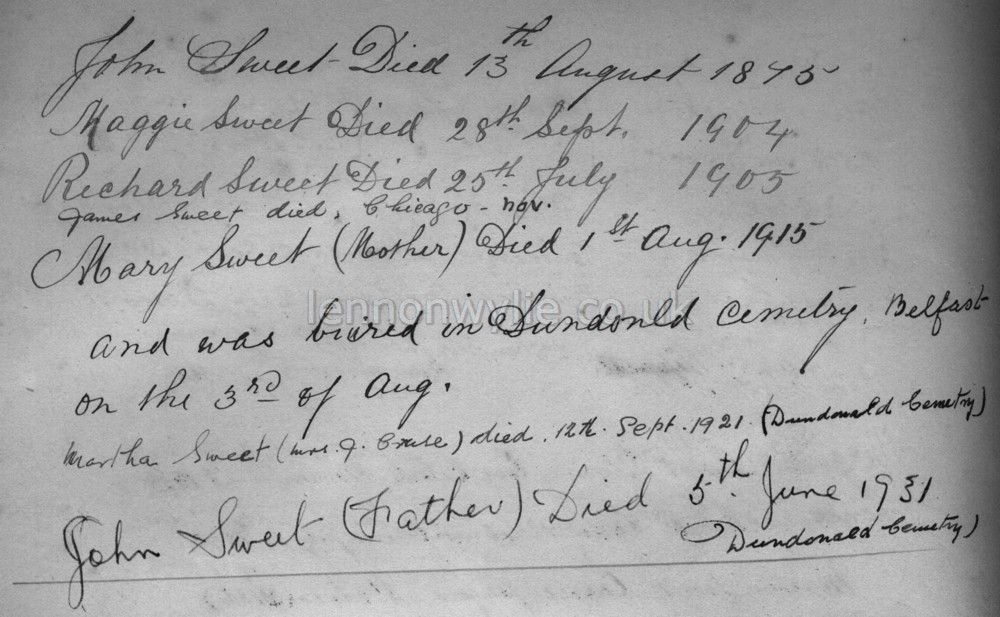 John Sweet Died 13th August 1875
Maggie Sweet Died 28th Sept. 1904
Richard Sweet Died 25th July 1905
James Sweet died, Chicago - nov.
Mary Sweet (Mother) Died 1st Aug. 1915
lennonwylie.co.uk
and was buired in Dundonld Cemetry, Belfast
on the 3rd of Aug.
Martha Sweet (mrs. J. ) died 12th. Sept. 1921. (Dundonald Cemetry)
John Sweet (Father) Died 5th June 1931
Dundonald Cemetry)